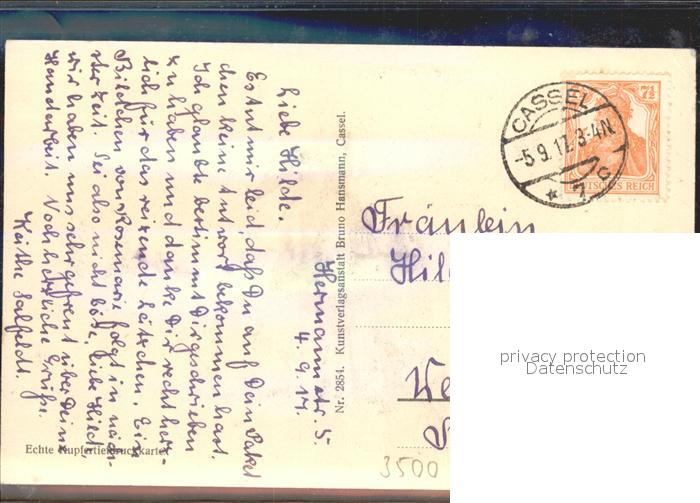 Hermannstr. 5.
4. 9. 17.
Liebe Hilde,
Es tut mir leid, daß Du auf Dein Paket
chen keine Antwort bekommen hast.
Ich glaubte bestimmt Dir geschrieben
zu haben und danke Dir recht herz-
lich für das reizende Lätzchen. Ein
Bildchen von Rosemarie folgt in näch-
ster Zeit. Sei also nicht böse, liebe Hilde
wir haben uns sehr gefreut über Deine
Handarbeit. Noch herzliche Grüße.
Käthe Salfeldt.
Echte Kupfertiefdruckkarte
Nr. 2854. Kunstverlagsanstalt Bruno Hansmann, Cassel.
CASSEL
-5.9.17. 3-4N
* 7 c
7½
DEUTSCHES REICH
Fräulein
Hil
3500
privacy protection
Datenschutz